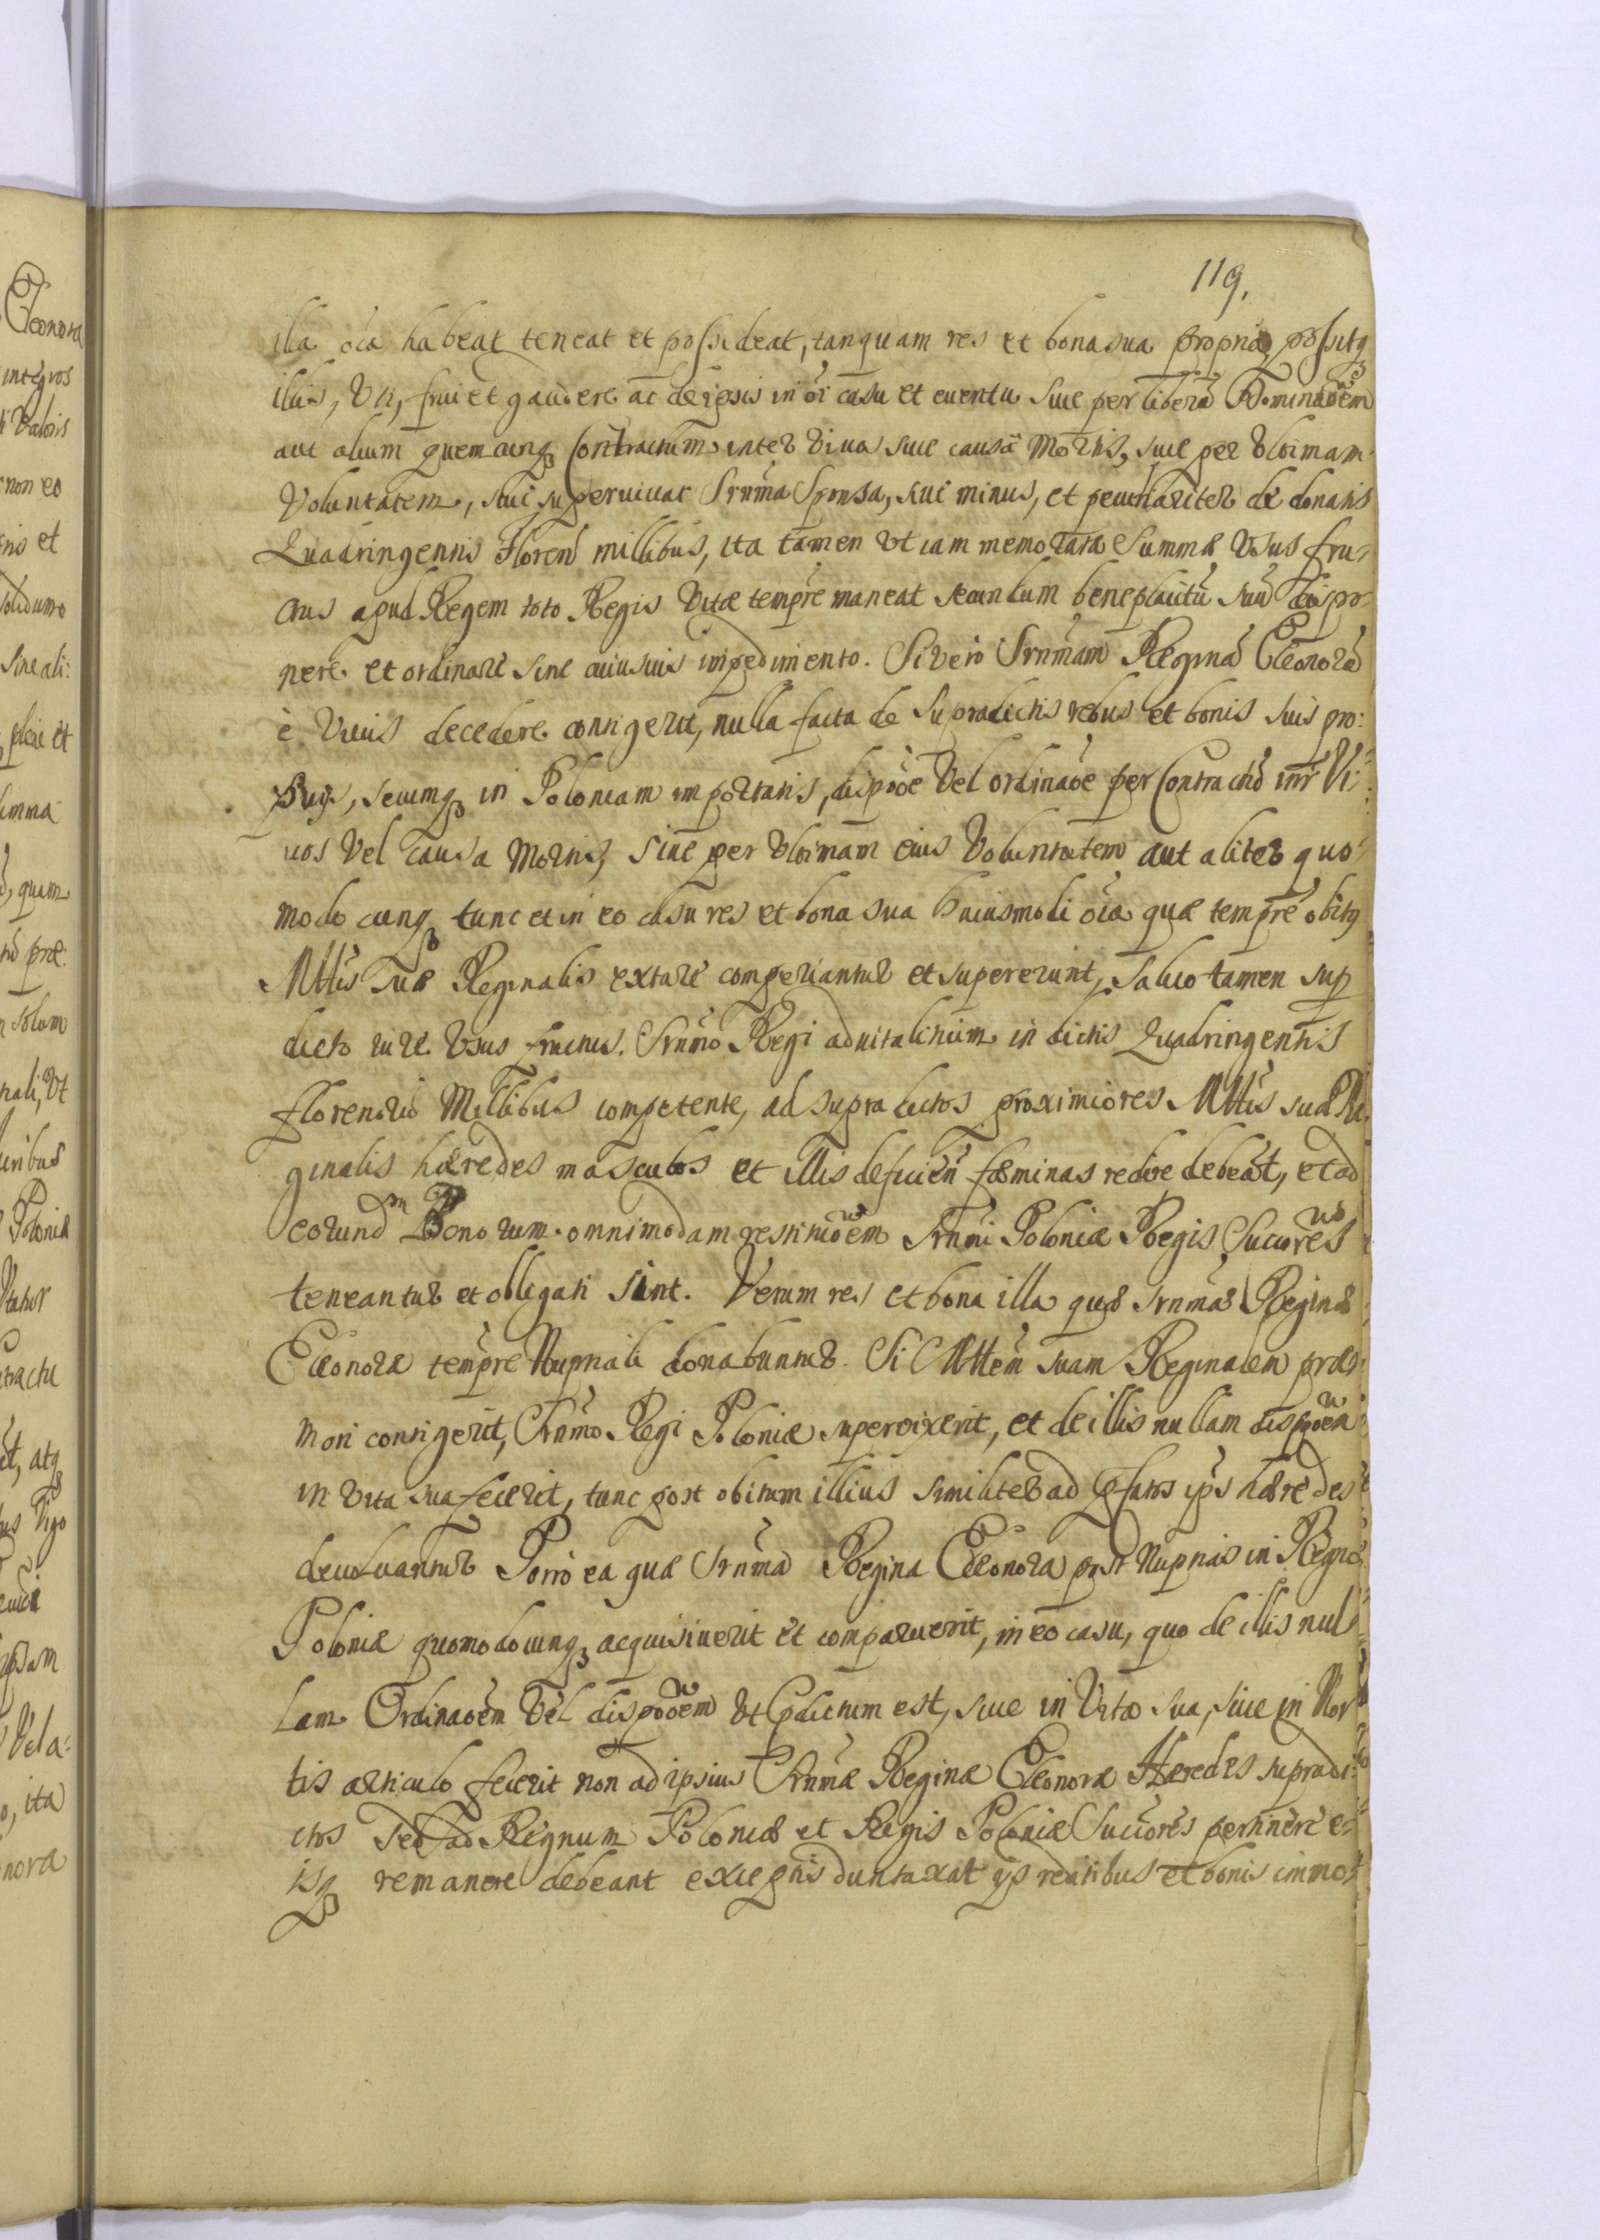 119.
illa oīa habeat teneat et possideat, tanquam res et bona sua propria, possitq3
illis, Uti, frui et gaudere ac de ipsis in oī casu et euentu siue per liberā Dominaōēm
aut alium quemcunq3 Contractum inter viua siue causā Mortis, siue per Vltimam
Voluntatem, siue superuiuat Srnīma Sponsa, siue minus, et peculiariter de donatis
Quadringentis Floren millibus, ita tamen vt iam memorata Summæ Vsus fru-
ctus apud Regem toto Regis Vitæ tempre maneat secundum beneplacitū suū dispo-
nere et ordinare sine cuiusuis impedimento. Si vero Srnīmam Reginā Eleonorā
è Viuis decedere contigerit, nulla facta de supradictis rebus et bonis suis pro-
prijs, secumq3 in Poloniam importatis, dispōōe Vel ordinaōe per Contractū intr Vi-
uos Vel Causa Mortis, siue per Vltimam eius Voluntatem aut aliter quo-
modocunq3 tunc et in eo casu res et bona sua huiusmodi oīa quæ tempre obitq
Mttis suæ Reginalis extare comperiantur et supererunt, saluo tamen sup
dicto iure Vsus fructus. Srnīmo Regi aduitalitium in dictis Quadringentis
florenorū Millibus competente, ad supradictos proximiores Mttis suæ Re-
ginalis hæredes masculos et illis deficien fæminas redire debeāt, et ad
eorundm Bonorum omnimodam restituōēm Srnīmi Poloniæ Regis Successores
teneantur et obligati sint. Verum res et bona illa quæ Srnīmæ Reginæ
Eleonoræ tempre Nuptiali donabuntur. Si Mttem suam Reginalem præ-
mori contigerit, Srnīmo Regi Poloniæ superuixerit, et de illis nullam dispōōēm
in vita sua fecerit, tunc post obitum illius similiter ad pfatos ips hæredes
deuoluantur Porro ea quæ Srnīma Regina Eleonora post Nuptias in Regno
Poloniæ quomodocunq3 acquisiuerit et comparuerit, in eo casu, quo de illis nul-
lam Ordinaōēm Vel dispōōēm vt pdictum est, siue in Vita sua, siue in Mor-
tis articulo fecerit non ad ipsius Srnīmæ Reginæ Eleonoræ Hæredes supradi-
ctos sed ad Regnum Poloniæ et Regis Poloniæ Succōres pertinere e-
isq3 remanere debeant exceptis duntaxat ijs reditibus et bonis immo-